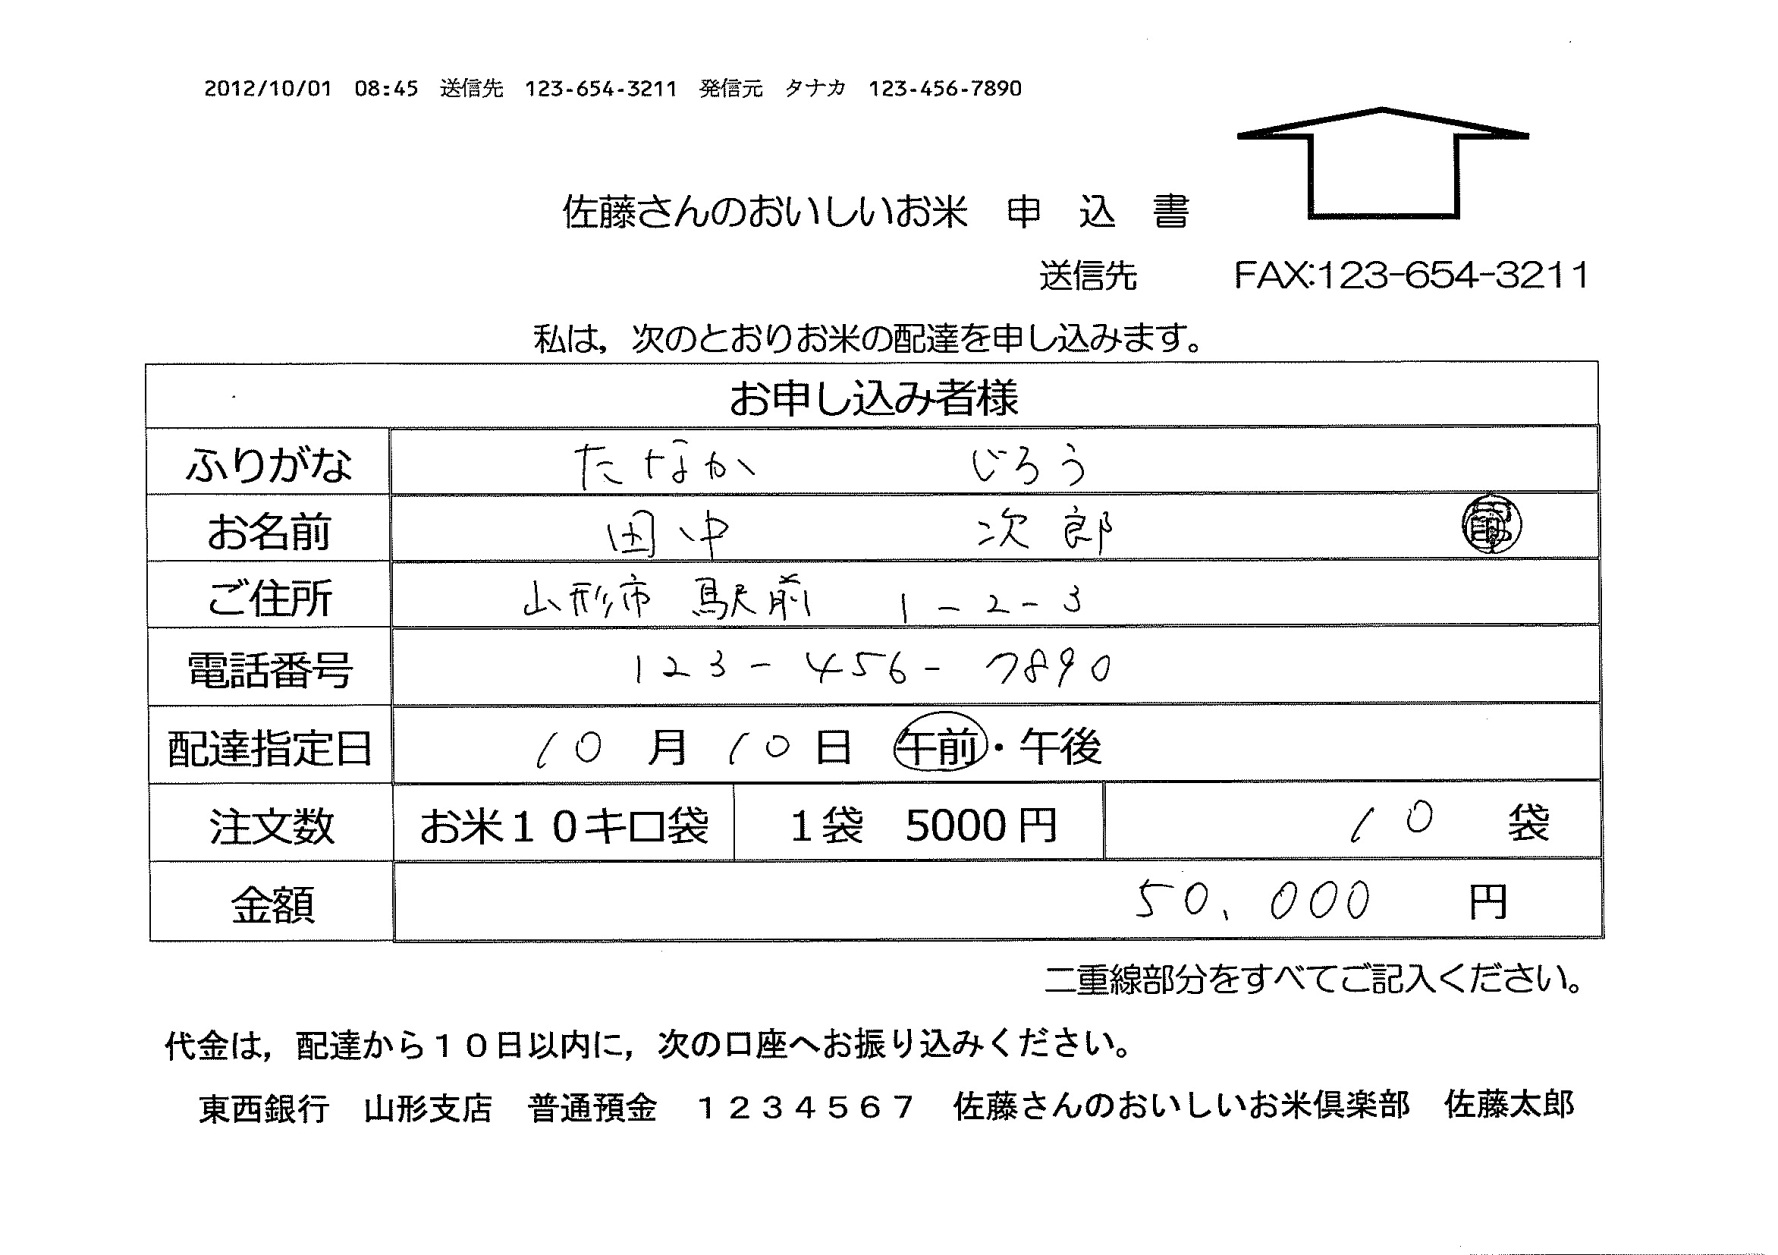 2012/10/01 08:45 送信先 123-654-3211 発信元 タナカ 123-456-7890
佐藤さんのおいしいお米 申 込 書
送信先 FAX:123-654-3211
私は，次のとおりお米の配達を申し込みます。
お申し込み者様
ふりがな たなか じろう
お名前 田中 次郎 印
ご住所 山形市 駅前 1-2-3
電話番号 123-456-7890
配達指定日 10 月 10 日 午前・午後
注文数 お米１０キロ袋 １袋 5000円 10 袋
金額 50,000 円
二重線部分をすべてご記入ください。
代金は，配達から１０日以内に，次の口座へお振り込みください。
東西銀行 山形支店 普通預金 １２３４５６７ 佐藤さんのおいしいお米倶楽部 佐藤太郎